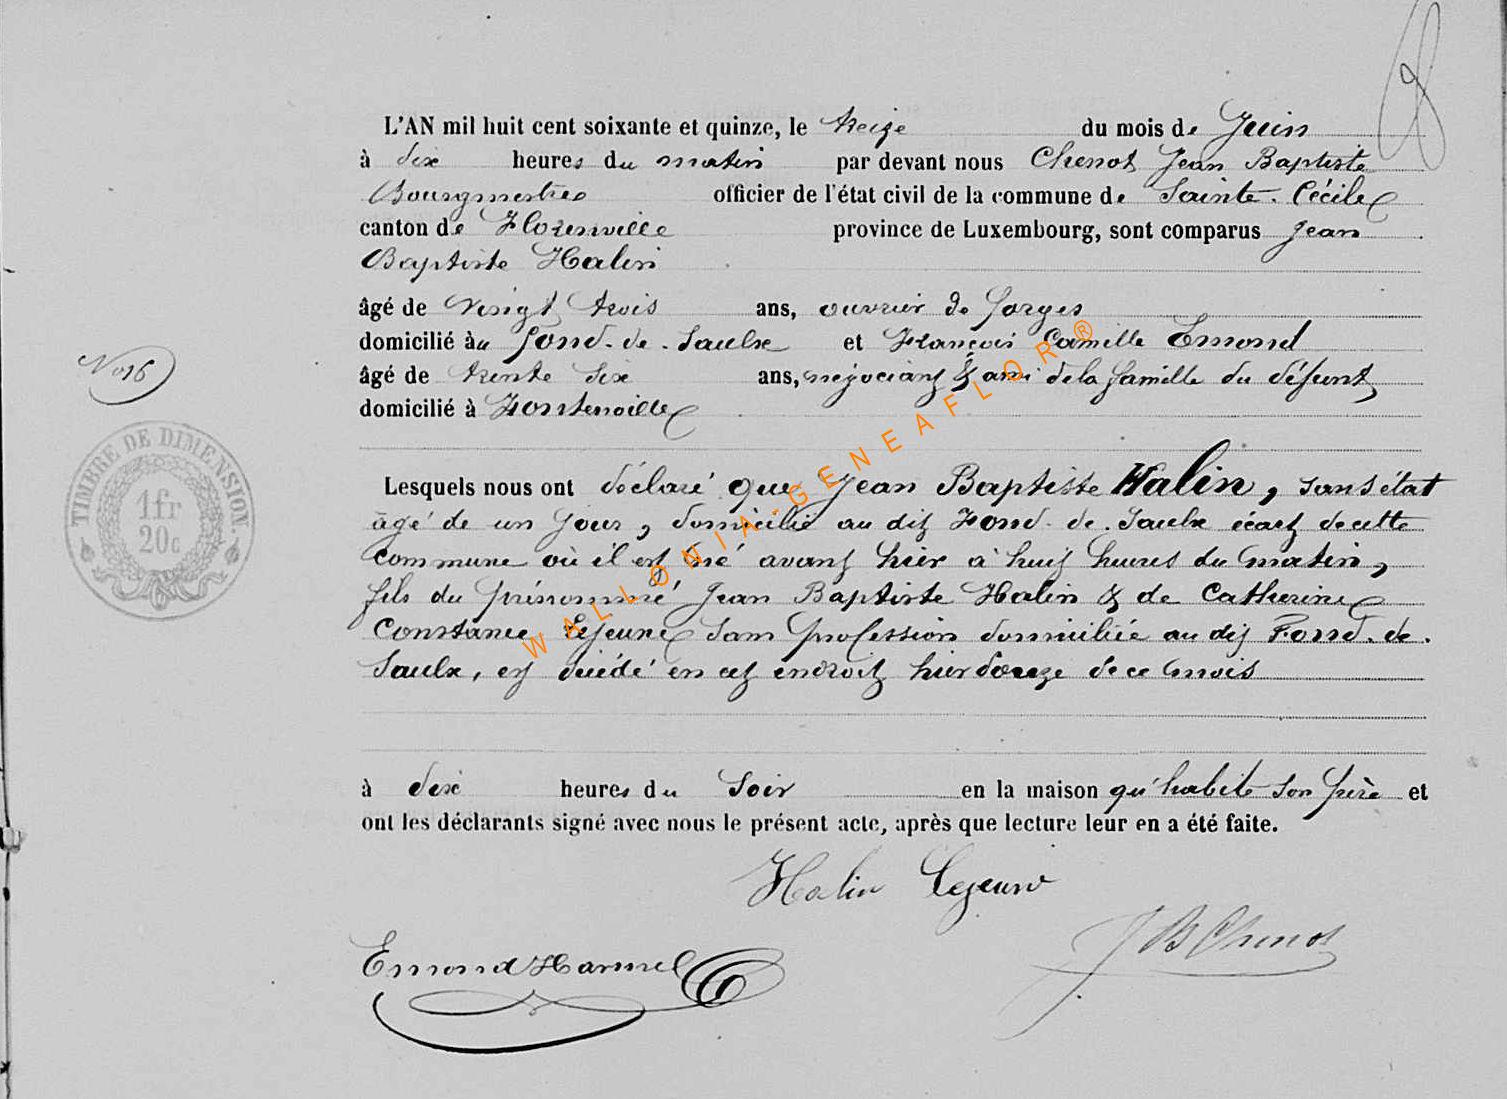 L'AN mil huit cent soixante et quinze, le treize du mois de Juin
à dix heures du matin par devant nous Chenot Jean Baptiste
Bourgmestre officier de l'état civil de la commune de Sainte-Cécile
canton de Florenville province de Luxembourg, sont comparus Jean
Baptiste Halin
âgé de vingt trois ans, ouvrier de forges
domicilié au fond-de-Saulx et François Camille Emond
No 16
âgé de trente six ans, négociant & ami de la famille du défunt
domicilié à Fontenoille
Lesquels nous ont déclaré que Jean Baptiste Halin, sans état
âgé de un jour, domicilié au dit Fond-de-Saulx écart de cette
commune où il est né avant hier à huit heures du matin,
fils du prénommé Jean Baptiste Halin & de Catherine
Constance Lejeune sans profession domiciliée au dit Fond-de-
Saulx, est décédé en cet endroit hier douze de ce mois
à dix heures du soir en la maison qu'habite son père et
ont les déclarants signé avec nous le présent acte, après que lecture leur en a été faite.
Halin Lejeune
JB Chenot
Emond Harmel
TIMBRE DE DIMENSION.
1fr
20c
WALLONIA-GENEAFLOR®